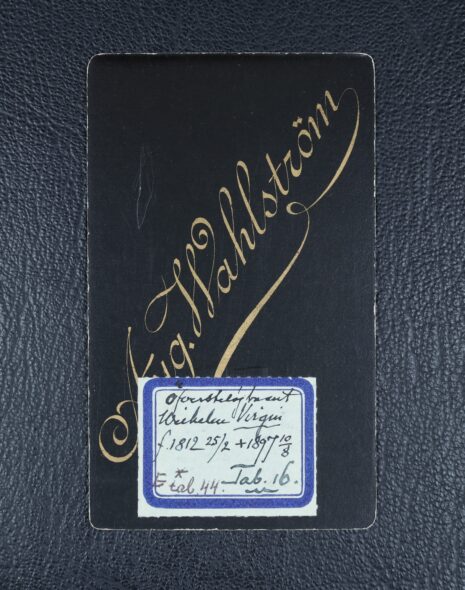 Aug. Wahlström
Öfverstelöjtnant
Wilhelm Virgin
f. 1812 25/2 + 1897 10/8
* tab. 44. Tab. 16.